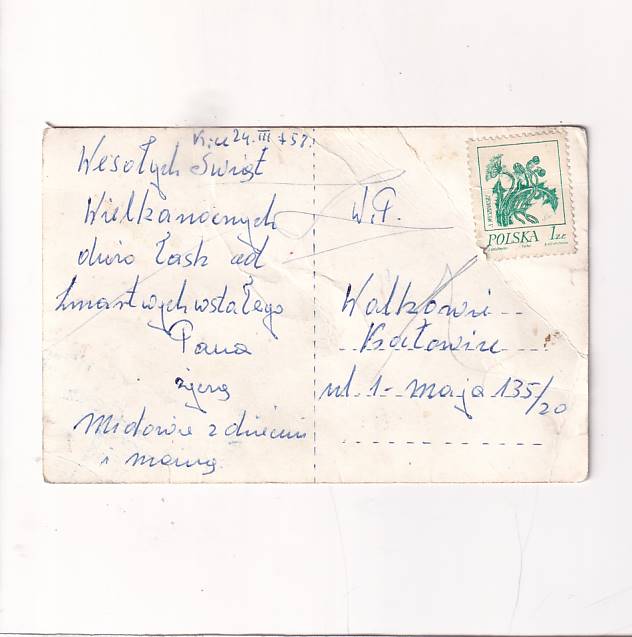 24.III
Wesołych Świąt
Wielkanocnych
dużo Łask od
Zmartwychwstałego
Pana
życzą
Midowie z dziećmi
i mamą
W.P.
Walkowie
Katowice
ul. 1-maja 135/20
S. WYSPIAŃSKI
POLSKA 1 ZŁ